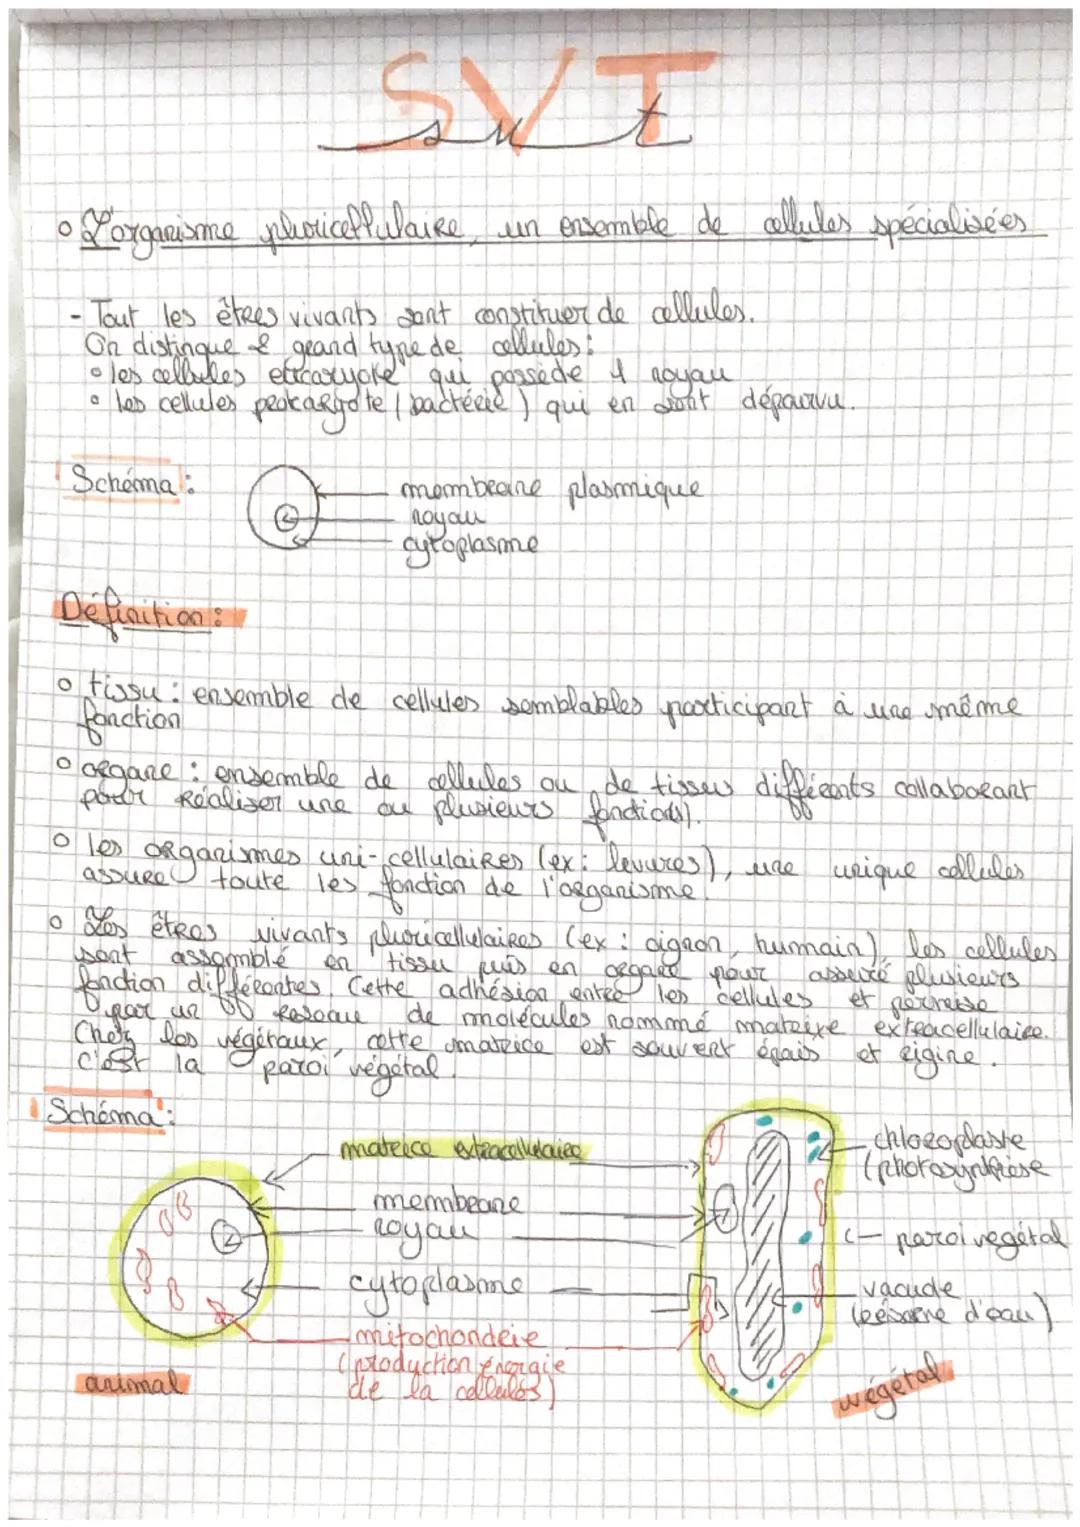 SVT
svt
o L'organisme pluricellulaire, un ensemble de cellules spécialisées
- Tout les êtres vivants sont constituer de cellules.
On distingue 2 grand type de cellules :
o les cellules eucaryote qui possède 1 noyau
o les cellules procaryote (bactérie) qui en sont dépourvu.
Schéma :
membrane plasmique
noyau
cytoplasme
Définition :
o tissu : ensemble de cellules semblables participant à une même
fonction
o organe : ensemble de cellules ou de tissus différents collaborant
pour Réaliser une ou plusieurs fonction(s).
o les organismes uni-cellulaires (ex : levures), une unique cellules
assure toute les fonction de l'organisme.
o Les êtres vivants pluricellulaires (ex : oignon, humain), les cellules
sont assemblé en tissu puis en organe pour assuré plusieurs
fonction différentes. Cette adhésion entre les cellules et permise
par un Reseau de molécules nommé matrixe extracellulaire.
Chez les végétaux, cette matrice est souvent épais et rigine.
c'est la paroi végétal.
Schéma :
matrice extracellulaire
chloroplaste
(photosynthèse
membrane
noyau
paroi vegétal
cytoplasme
vacuole
(réserve d'eau)
mitochondrie
(production énergie
de la cellules)
animal
végétal